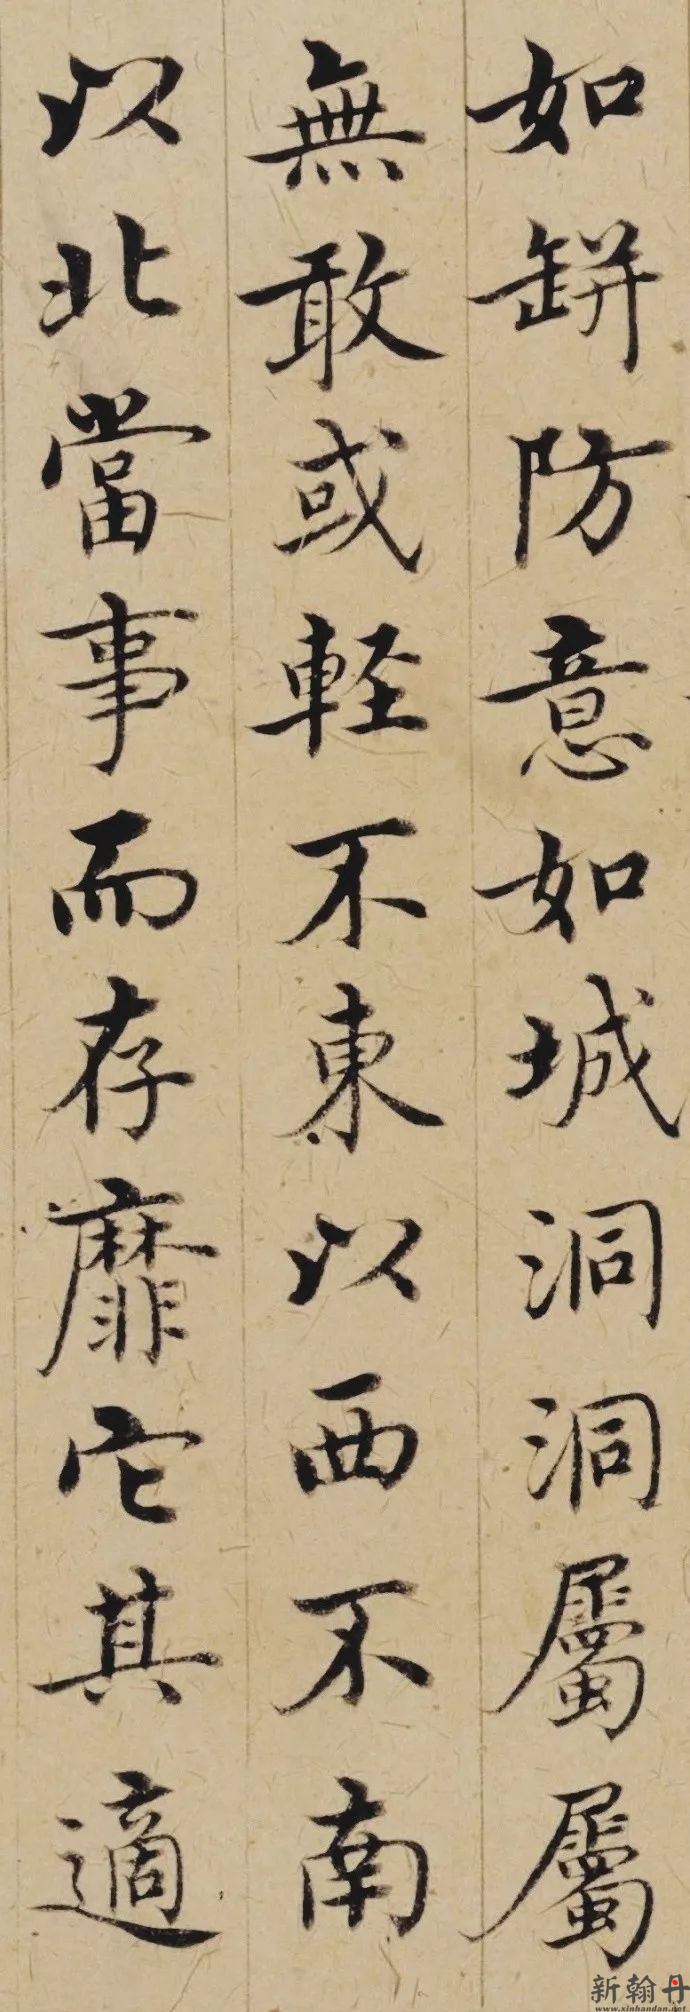 如缾防意如城洞洞屬屬
無敢或軽不東以西不南
以北當事而存靡它其適
新翰丹
www.xinhandan.net